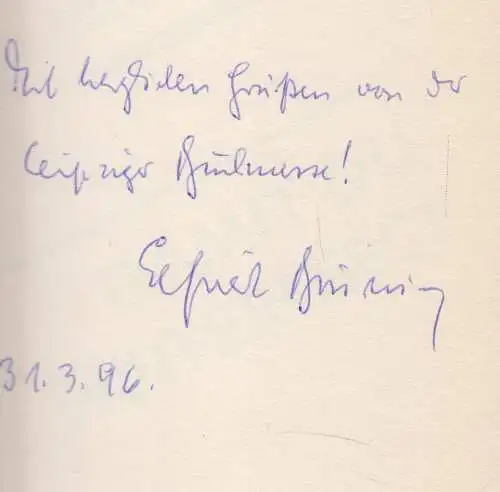 Mit herzlichen Grüßen von der
Leipziger Buchmesse!
Elfriede Brüning
31.3.96.